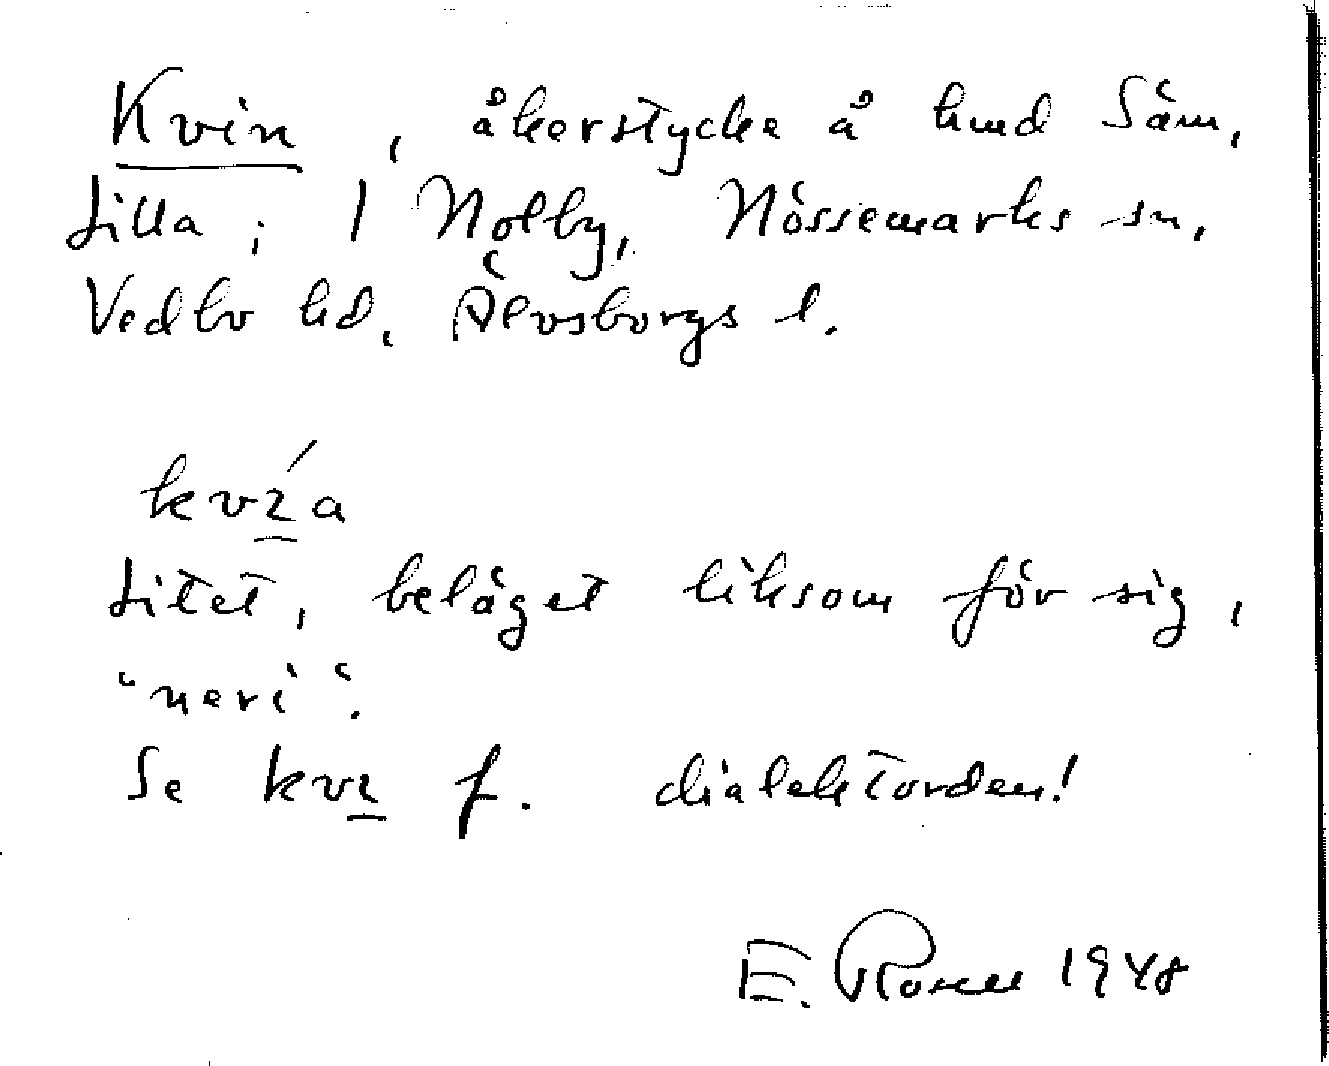 Kvin, åkerstycke å hmd Säm,
lilla; 1 Nolby, Nössemarks sn,
Vedbo hd, Älvsborgs l.
kvía
Litet, beläget liksom för sig,
"neri".
Se kvı f. dialektorden!
E. Rosen 1948